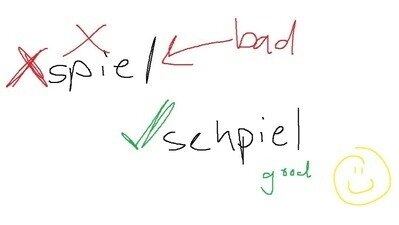 spiel bad
schpiel
good